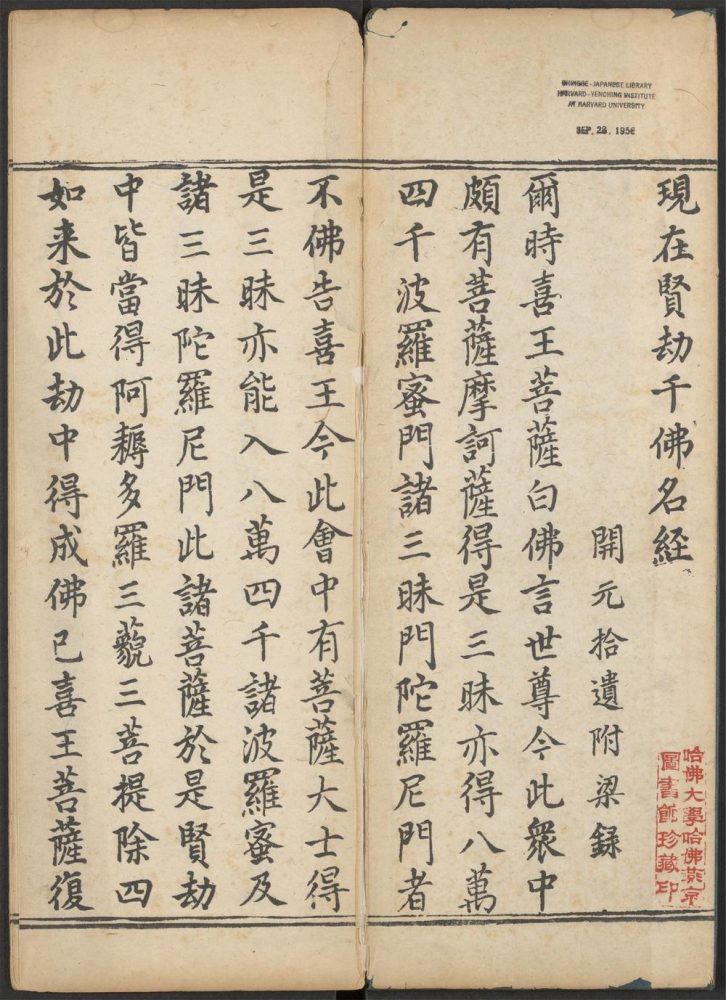 現在賢劫千佛名経
開元拾遺附梁録
爾時喜王菩薩白佛言世尊今此衆中
頗有菩薩摩訶薩得是三昧亦得八萬
四千波羅蜜門諸三昧門陀羅尼門者
不佛告喜王今此會中有菩薩大士得
是三昧亦能入八萬四千諸波羅蜜及
諸三昧陀羅尼門此諸菩薩於是賢劫
中皆當得阿耨多羅三藐三菩提除四
如来於此劫中得成佛已喜王菩薩復
CHINESE-JAPANESE LIBRARY
HARVARD-YENCHING INSTITUTE
AT HARVARD UNIVERSITY
SEP. 28, 1956
哈佛大學哈佛燕京
圖書館珍藏印